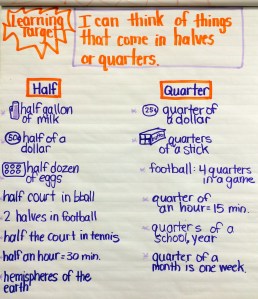 Learning
Target
I can think of things
that come in halves
or quarters.
Half
half gallon
of milk
50¢ half of a
dollar
half dozen
of eggs
half court in bball
2 halves in football
half the court in tennis
half an hour = 30 min.
hemispheres of the
earth
Quarter
25¢ quarter of
a dollar
quarters
of a stick
football: 4 quarters
in a game
quarter of
an hour = 15 min.
quarters of a
school year
quarter of a
month is one week.